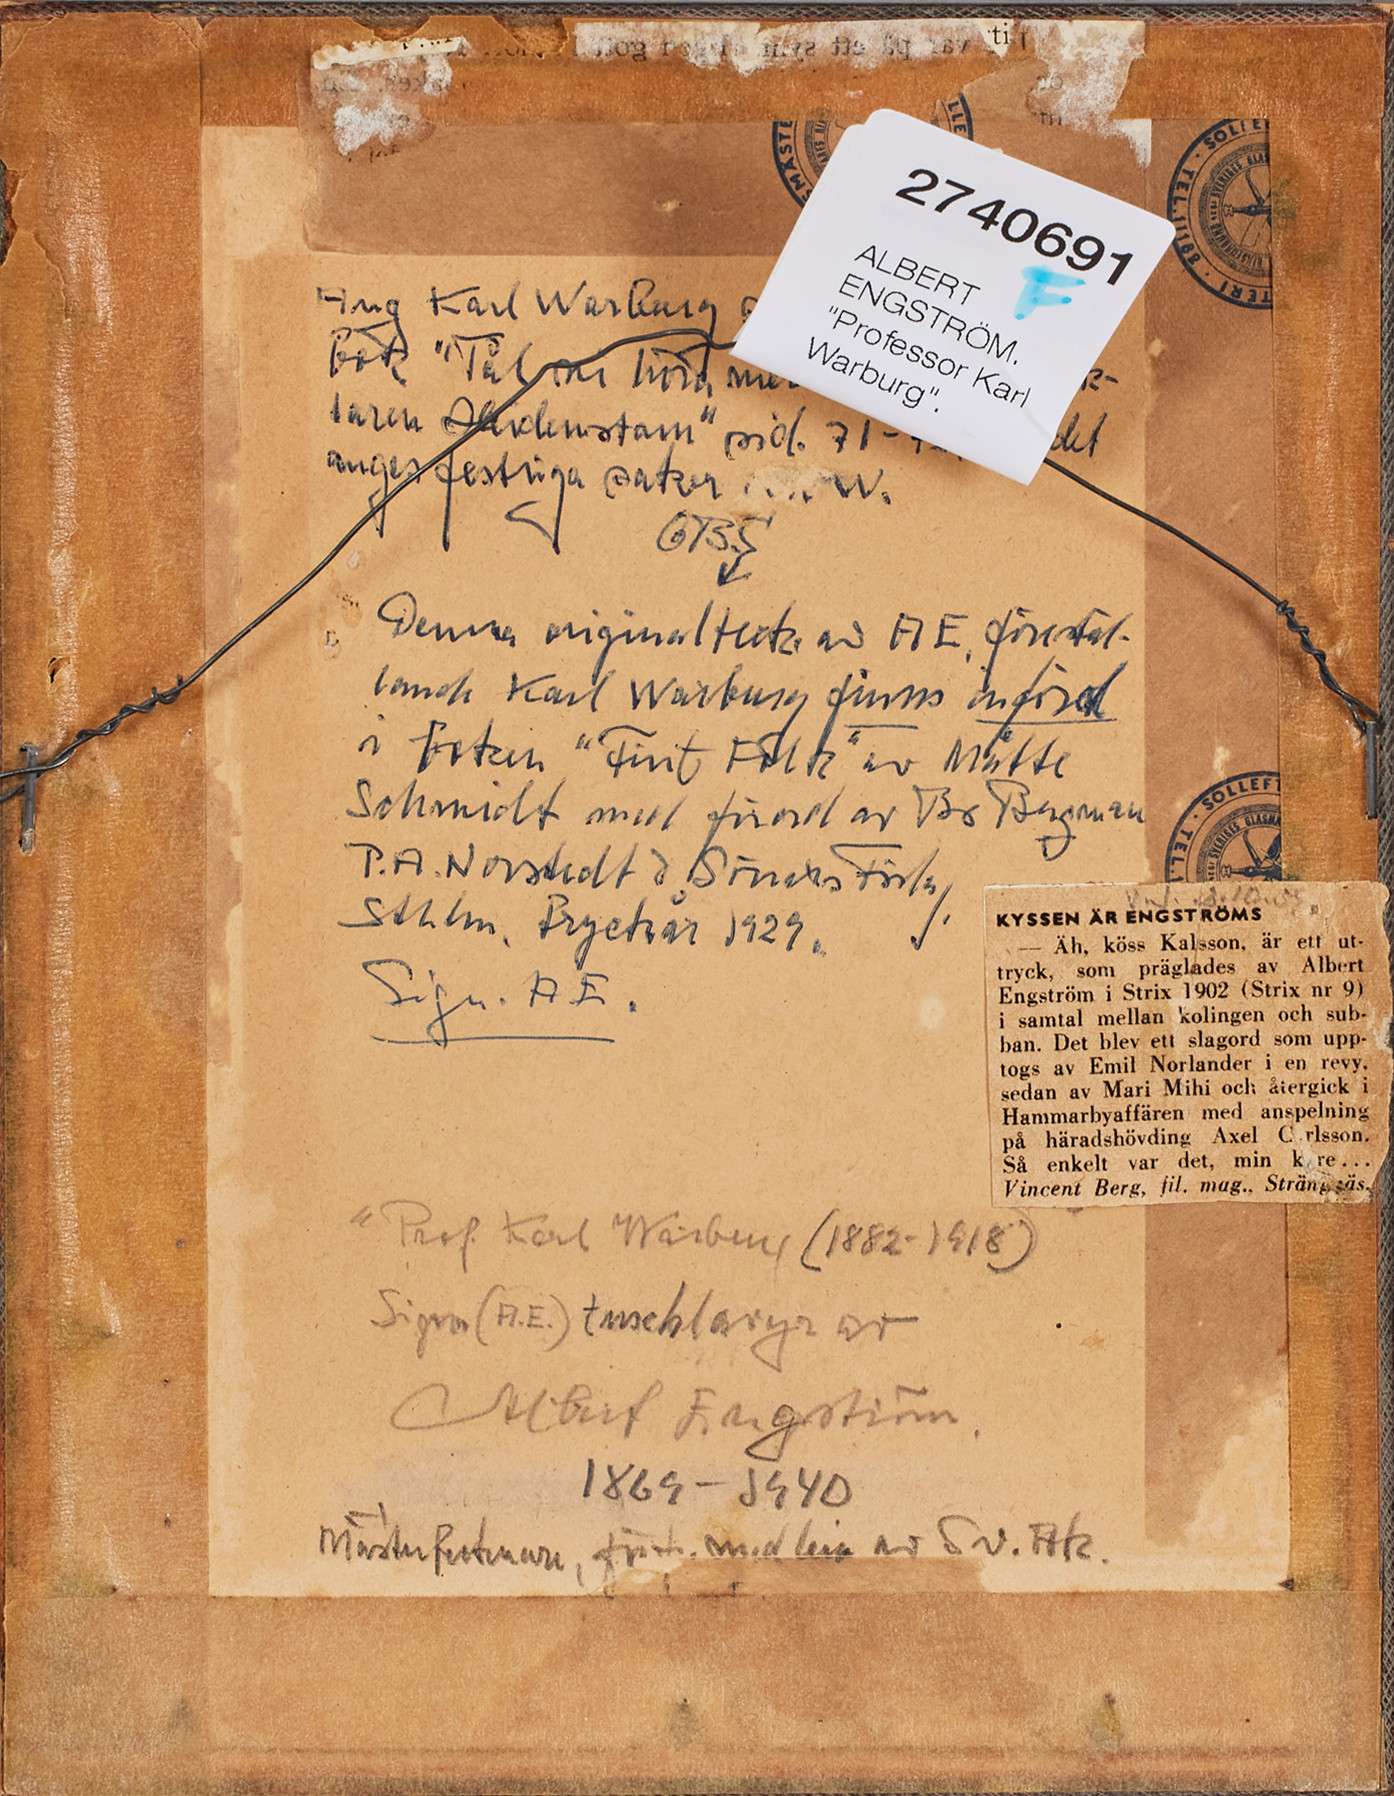 2740691
F
ALBERT
ENGSTRÖM.
"Professor Karl
Warburg".
SOLLE
TEL. 1111
SVERIGES GLAS
Ang Karl Warburg
bok "Tål
laren Heidenstam" sid. 71- det
anges festliga saker W.
OBS
Denna originalteckn av AE, förestäl-
lande Karl Warburg finns införd
i boken "Fint Folk" av Mätte
Schmidt med förord av Bo Bergman
P.A. Norstedt & Söners Förlag
Sthlm. Tryckår 1929.
Sign. AE.
SOLLEFT
TEL.
SVERIGES GLASMÄ
KYSSEN ÄR ENGSTRÖMS
— Äh, köss Kalsson, är ett ut-
tryck, som präglades av Albert
Engström i Strix 1902 (Strix nr 9)
i samtal mellan kolingen och sub-
ban. Det blev ett slagord som upp-
togs av Emil Norlander i en revy,
sedan av Mari Mihi och återgick i
Hammarbyaffären med anspelning
på häradshövding Axel C rlsson.
Så enkelt var det, min k re...
Vincent Berg, fil. mag., Strängnäs.
"Prof. Karl Warburg (1882-1918)
Sign (A.E.) tuschlavyr av
Albert Engström.
1869-1940
Mästertecknare, av Sv. Ak.